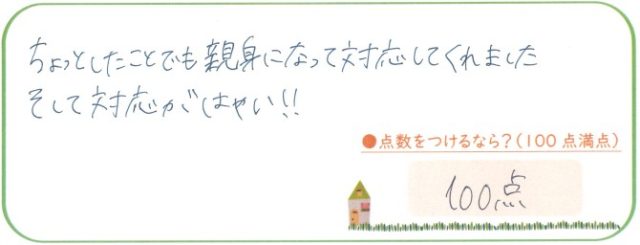 ちょっとしたことでも親身になって対応してくれました
そして対応がはやい!!
●点数をつけるなら?(100点満点)
100点